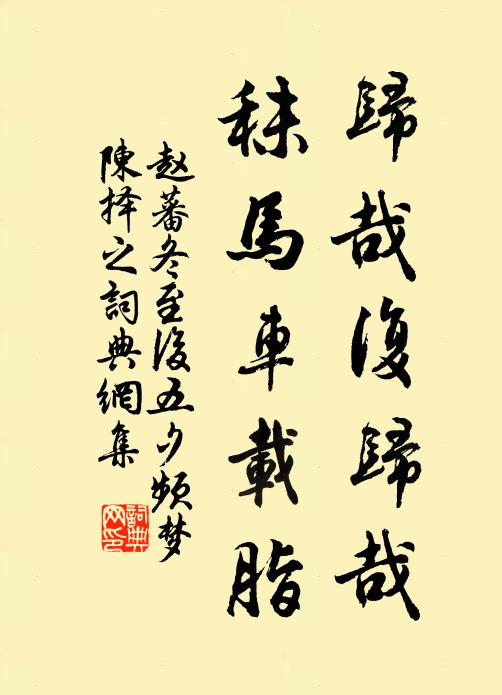 歸哉復歸哉
秣馬車載脂
赵蕃冬至後五夕頻梦
陳择之詞典網集
詞典
网印